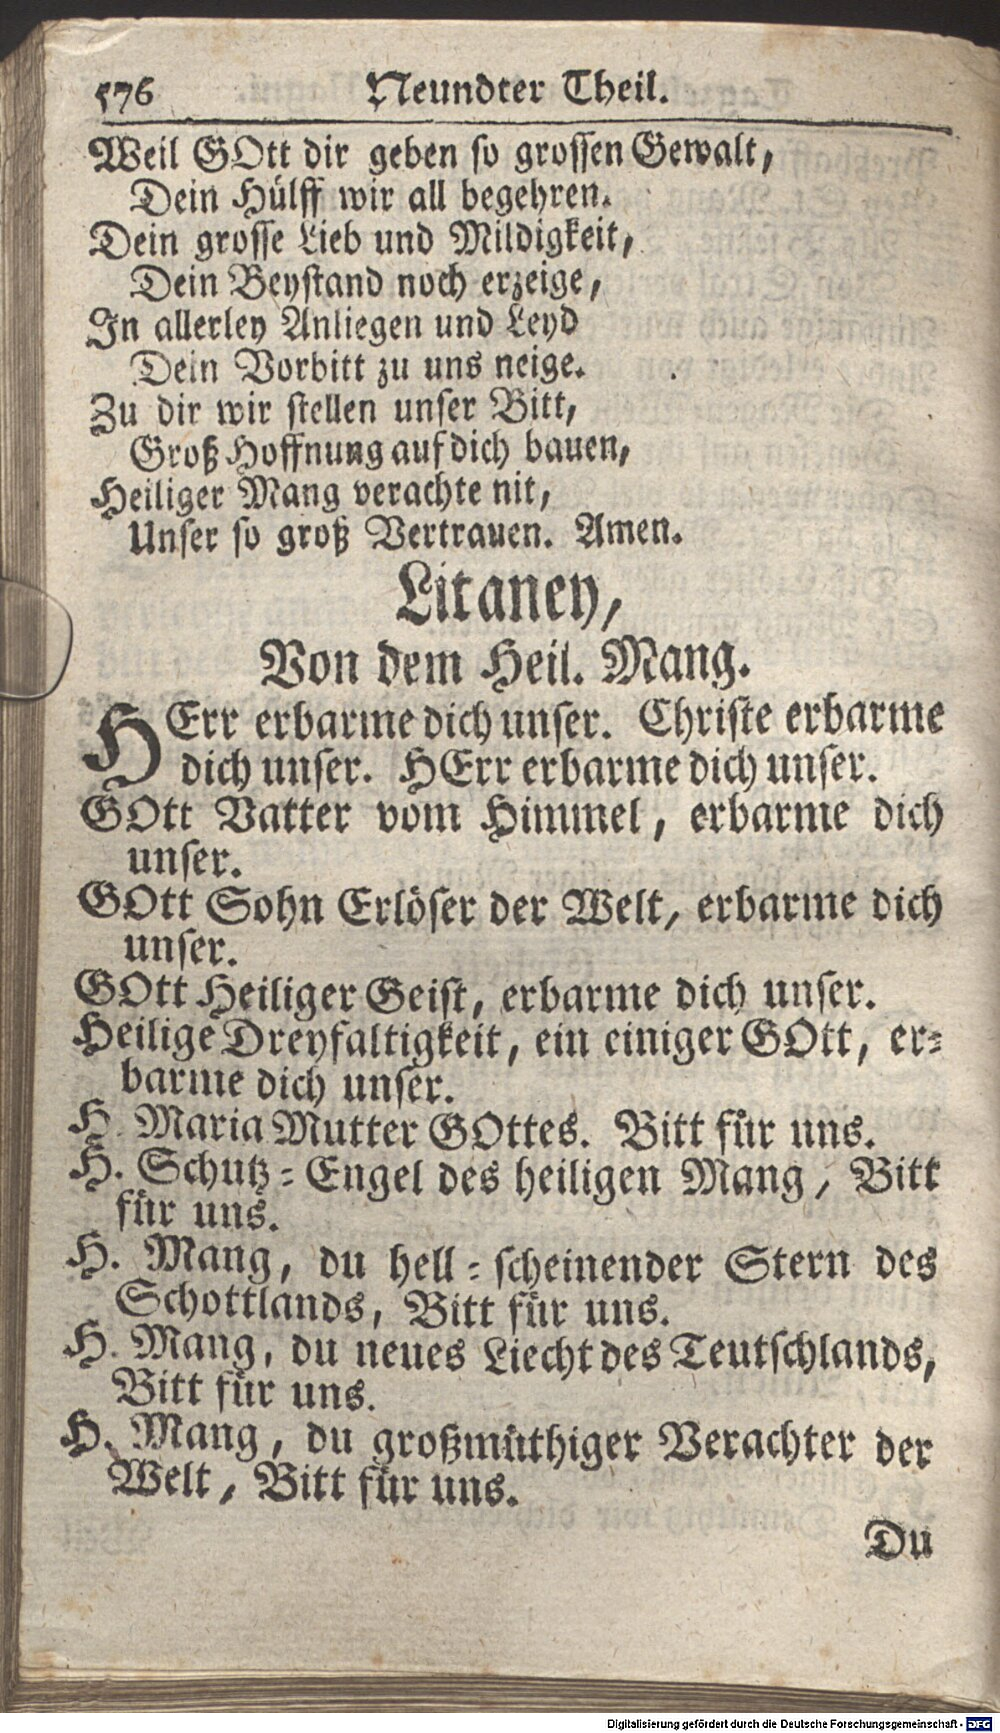 576 Neundter Theil.
Weil GOtt dir geben so grossen Gewalt,
Dein Hülff wir all begehren.
Dein grosse Lieb und Mildigkeit,
Dein Beystand noch erzeige,
In allerley Anliegen und Leyd
Dein Vorbitt zu uns neige.
Zu dir wir stellen unser Bitt,
Groß Hoffnung auf dich bauen,
Heiliger Mang verachte nit,
Unser so groß Vertrauen. Amen.
Litaney,
Von dem Heil. Mang.
HErr erbarme dich unser. Christe erbarme
dich unser. HErr erbarme dich unser.
GOtt Vatter vom Himmel, erbarme dich
unser.
GOtt Sohn Erlöser der Welt, erbarme dich
unser.
GOtt Heiliger Geist, erbarme dich unser.
Heilige Dreyfaltigkeit, ein einiger GOtt, er-
barme dich unser.
H. Maria Mutter GOttes. Bitt für uns.
H. Schutz-Engel des heiligen Mang, Bitt
für uns.
H. Mang, du hell-scheinender Stern des
Schottlands, Bitt für uns.
H. Mang, du neues Liecht des Teutschlands,
Bitt für uns.
H. Mang, du großmüthiger Verachter der
Welt, Bitt für uns.
Du
Digitalisierung gefördert durch die Deutsche Forschungsgemeinschaft - DFG